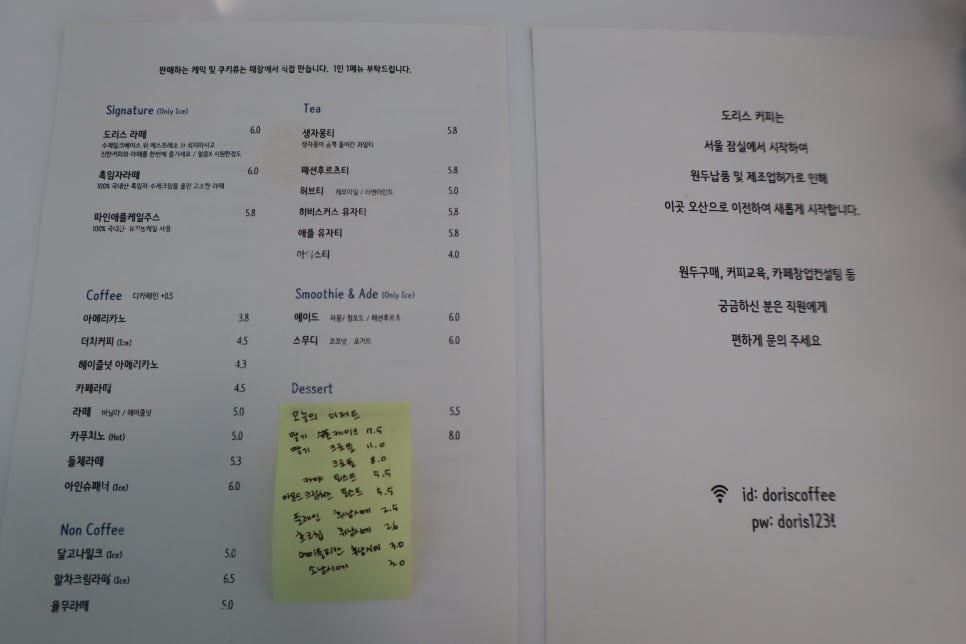 판매하는 케익 및 쿠키류는 매장에서 직접 만듭니다. 1인 1메뉴 부탁드립니다.
Signature (Only Ice)
도리스 라떼 6.0
수제밀크베이스 위 에스프레소 >> 섞지마시고
진한커피와 라떼를 한번에 즐기세요 / 얼음X 시원한정도
흑임자라떼 6.0
100% 국내산 흑임자 수제크림을 올린 고소한 라떼
파인애플케일주스 5.8
100% 국내산 유기농케일 사용
Coffee 디카페인 +0.5
아메리카노 3.8
더치커피 (Ice) 4.5
헤이즐넛 아메리카노 4.3
카페라떼 4.5
라떼 바닐라 / 헤이즐넛 5.0
카푸치노 (Hot) 5.0
돌체라떼 5.3
아인슈패너 (Ice) 6.0
Non Coffee
달고나밀크 (Ice) 5.0
말차크림라떼 (Ice) 6.5
율무라떼 5.0
Tea
생자몽티 5.8
생자몽이 듬뿍 들어간 과일티
패션후르츠티 5.8
허브티 캐모마일 / 라벤더민트 5.0
히비스커스 유자티 5.8
애플 유자티 5.8
아이스티 4.0
Smoothie & Ade (Only Ice)
에이드 자몽/ 청포도 / 패션후르츠 6.0
스무디 코코넛 요거트 6.0
Dessert
5.5
8.0
오늘의 디저트
딸기 생크림케이크 7.5
딸기 크로플 11.0
크로플 8.0
카야 토스트 5.5
아몬드크림치즈 토스트 5.5
플레인 휘낭시에 2.5
초코칩 휘낭시에 2.6
메이플피칸 휘낭시에 3.0
소낭시에 3.0
도리스 커피는
서울 잠실에서 시작하여
원두납품 및 제조업허가로 인해
이곳 오산으로 이전하여 새롭게 시작합니다.
원두구매, 커피교육, 카페창업컨설팅 등
궁금하신 분은 직원에게
편하게 문의 주세요
id: doriscoffee
pw: doris123!